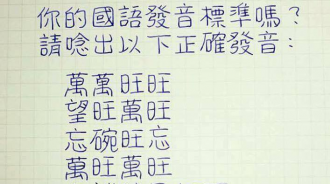 你的國語發音標準嗎？
請唸出以下正確發音：
萬萬旺旺
望旺萬旺
忘碗旺忘
萬旺萬旺